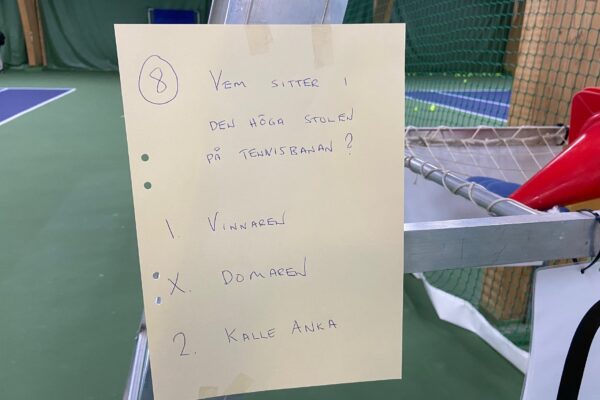 8 VEM SITTER I
DEN HÖGA STOLEN
PÅ TENNISBANAN?
1. VINNAREN
X. DOMAREN
2. KALLE ANKA